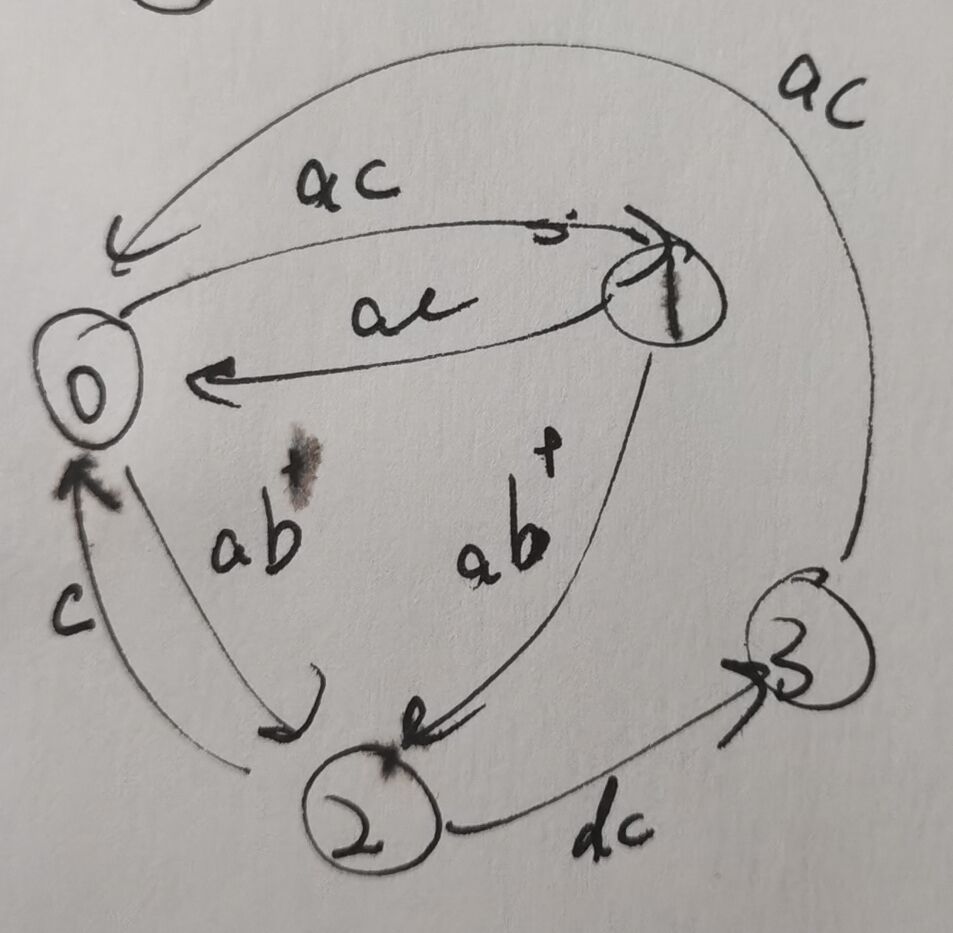 ac
ac
1
ac
0
ab+
ab+
c
3
2
dc